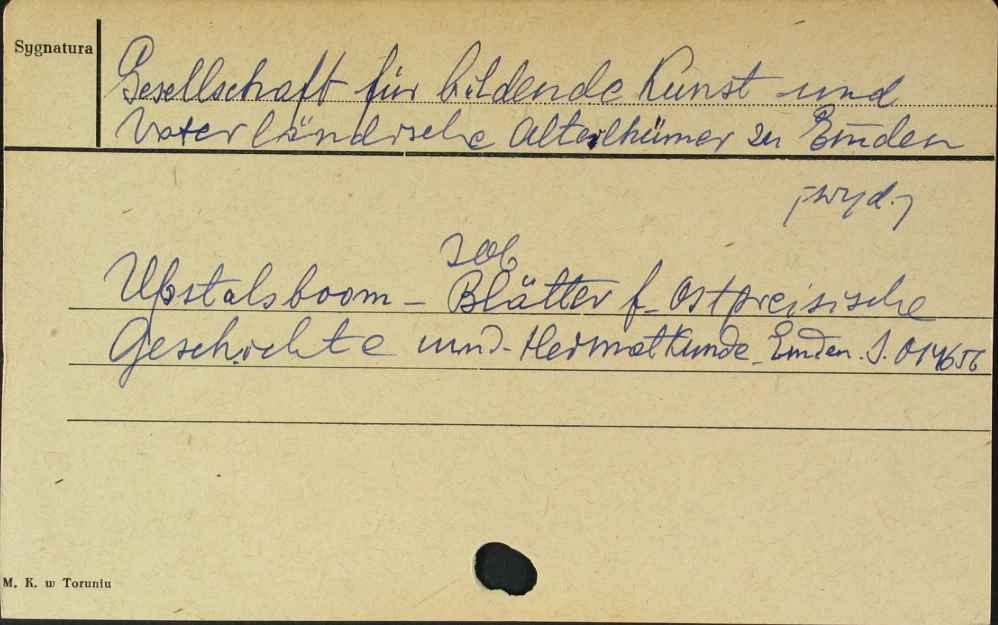 Sygnatura
Gesellschaft für bildende Kunst und
Vaterländische Alterthümer zu Emden
[wyd.]
Zob
Upstalsboom - Blätter f. Ostpreisische
Geschichte und Heimatkunde. Emden. S. 014656
M. K. w Toruniu